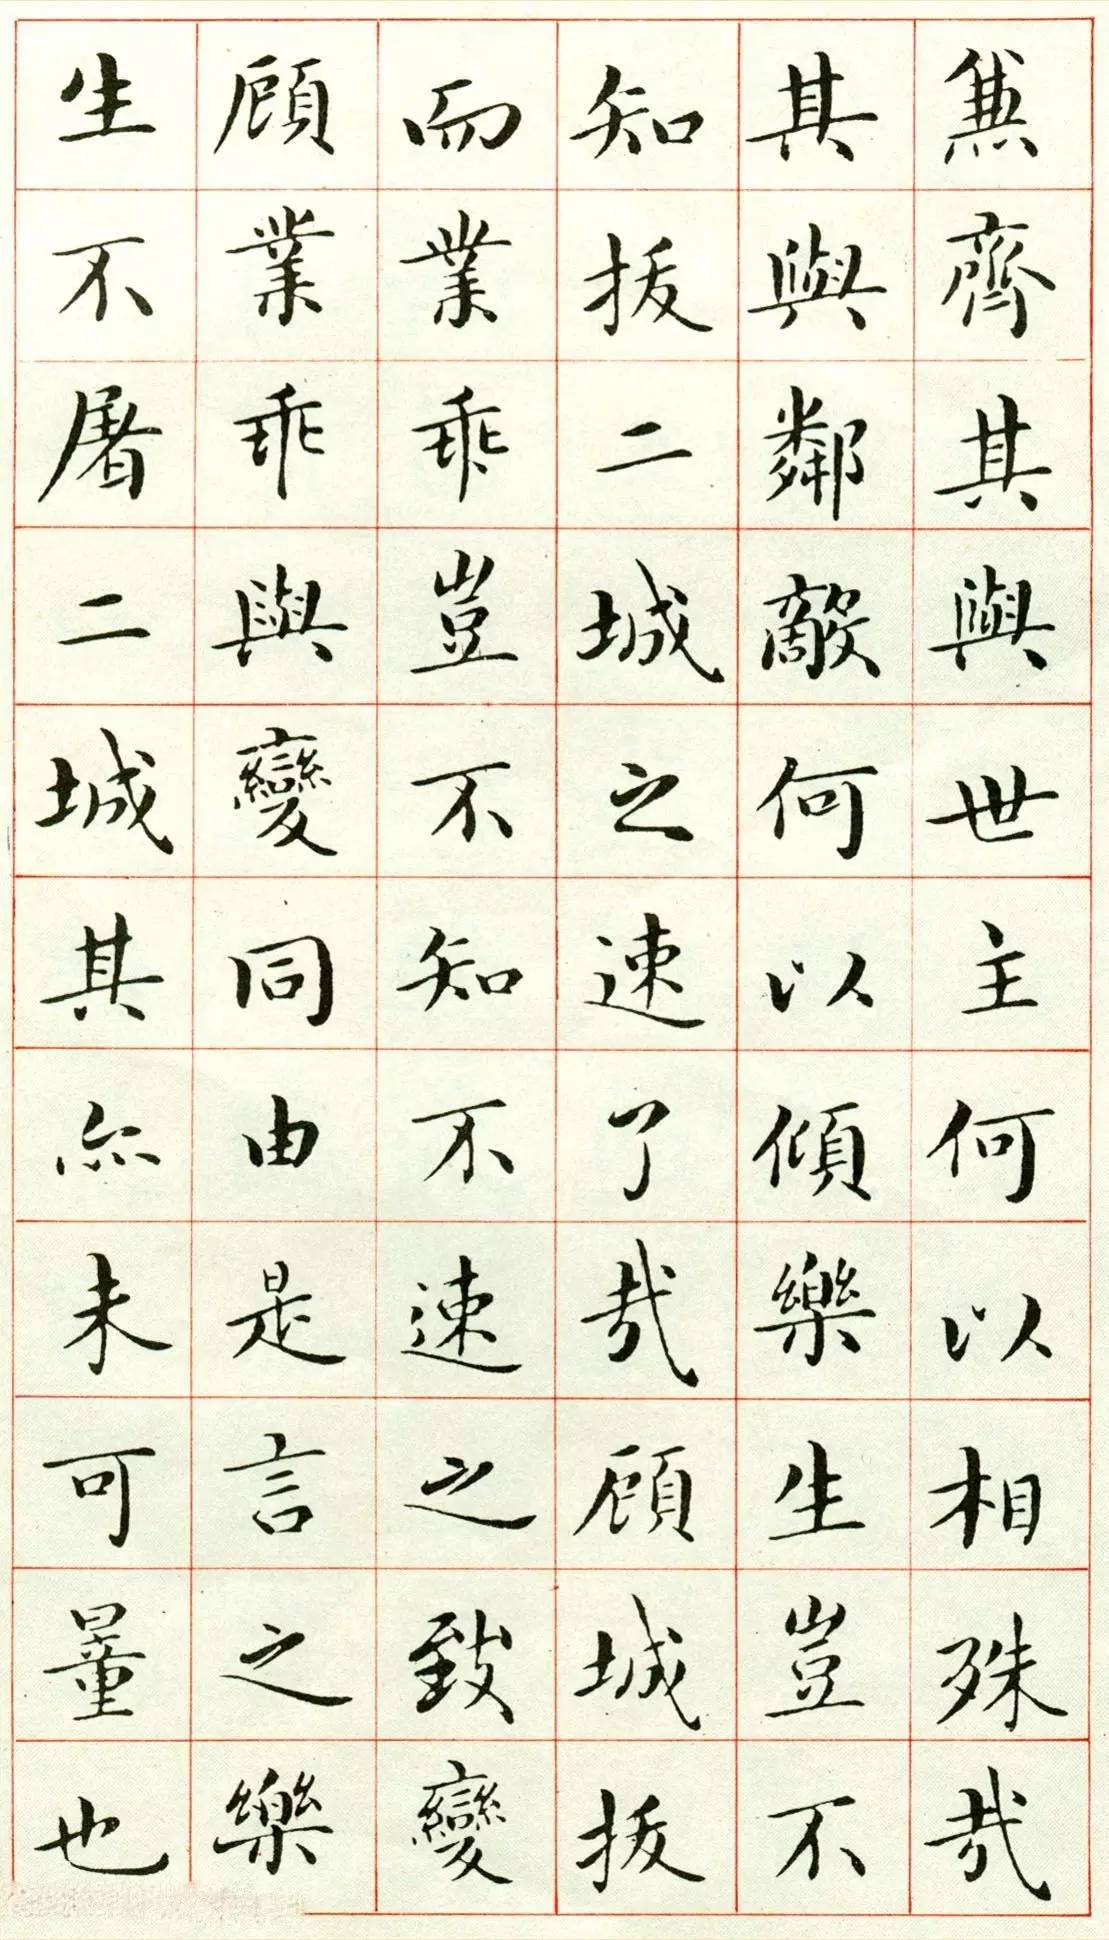 兼齊其與世主何以相殊哉
其與鄰敵何以傾樂生豈不
知拔二城之速了哉顧城拔
而業乖豈不知不速之致變
顧業乖與變同由是言之樂
生不屠二城其亦未可量也